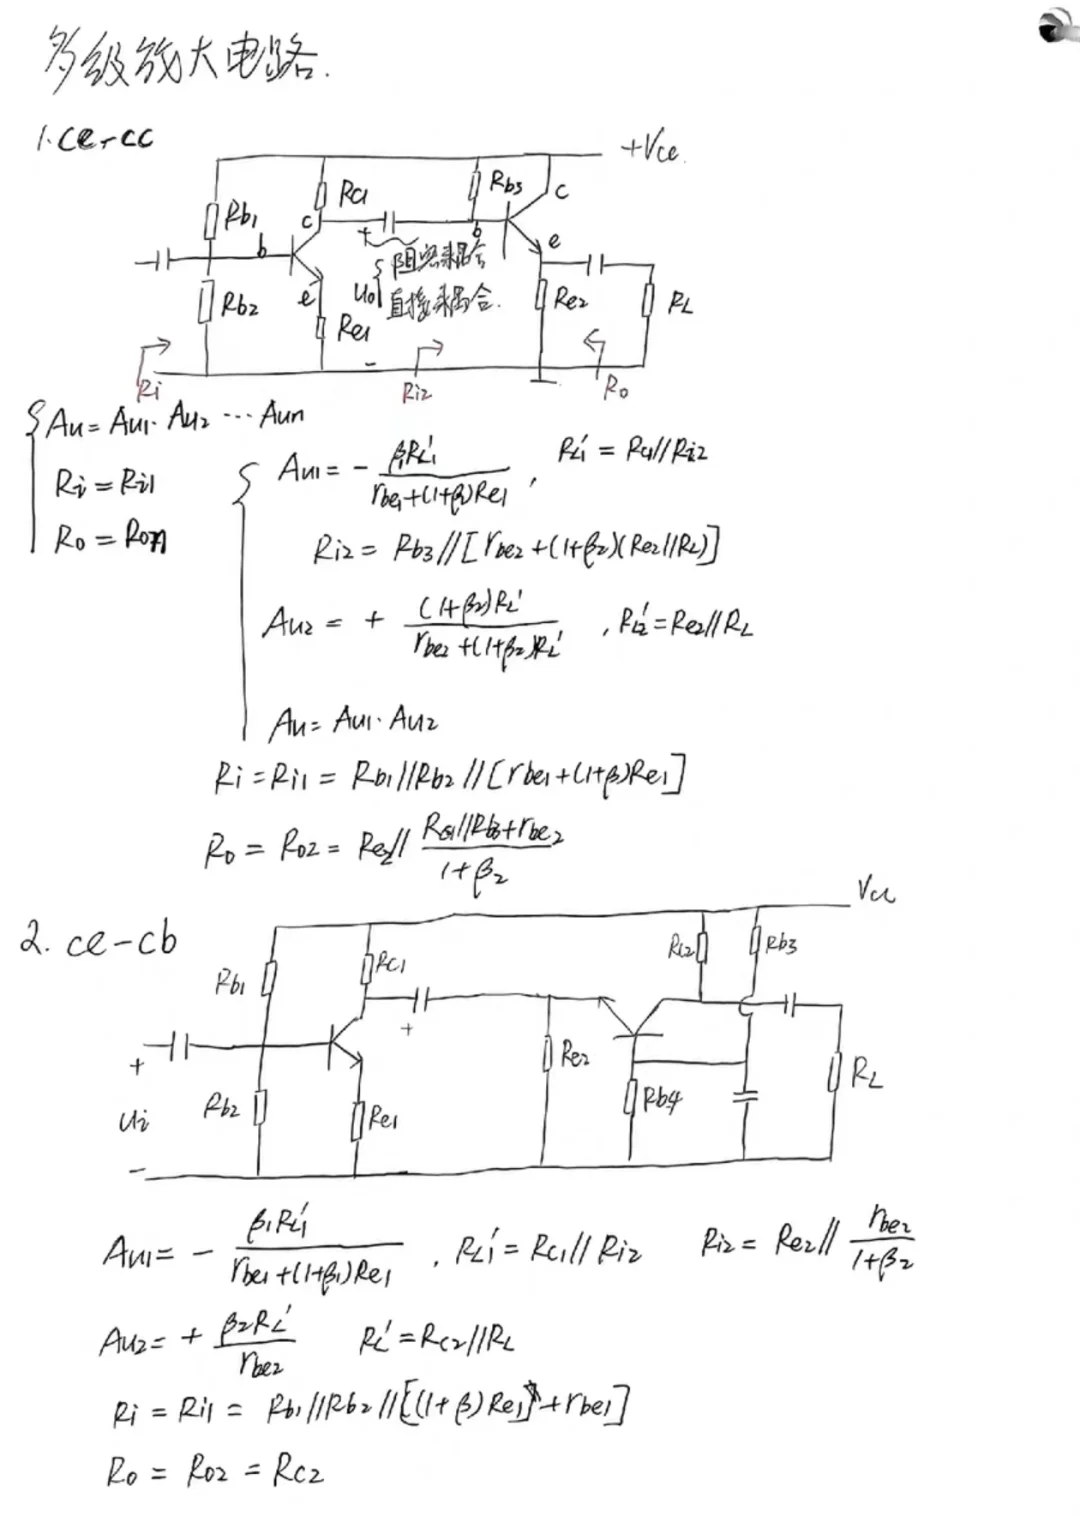 多级放大电路.
1. ce-cc
+Vcc.
Rb1
Rc1
c
Rb3
c
b
b
e
+
阻容耦合
e
Rb2
Uo1
直接耦合.
Re2
RL
Re1
-
Ri
Ri2
Ro
Au = Au1· Au2 ··· Aun
Ri = Ri1
Ro = Ron
Au1 = - β1RL1' / rbe1+(1+β1)Re1 , RL1' = Rc1//Ri2
Ri2 = Rb3//[rbe2+(1+β2)(Re2//RL)]
Au2 = + (1+β2)RL' / rbe2+(1+β2)RL' , RL2' = Re2//RL
Au = Au1· Au2
Ri = Ri1 = Rb1//Rb2//[rbe1+(1+β)Re1]
Ro = Ro2 = Re2// Rc1//Rb3+rbe2 / 1+β2
2. ce-cb
Vcc
Rb1
Rc1
Rc2
Rb3
+
+
Re2
RL
Ui
Rb2
Re1
Rb4
-
Au1 = - β1RL1' / rbe1+(1+β1)Re1 , RL1' = Rc1//Ri2 Ri2 = Re2// rbe2 / 1+β2
Au2 = + β2RL' / rbe2 RL' = Rc2//RL
Ri = Ri1 = Rb1//Rb2//[(1+β)Re1+rbe1]
Ro = Ro2 = Rc2